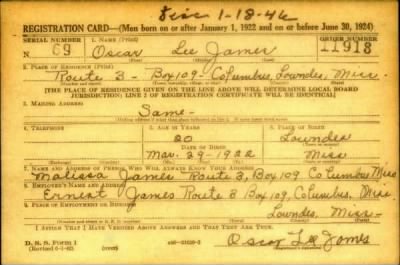 Disc 1-18-46
REGISTRATION CARD—(Men born on or after January 1, 1922 and on or before June 30, 1924)
SERIAL NUMBER 1. NAME (Print) ORDER NUMBER
N 69 Oscar Lee James 11918
(First) (Middle) (Last)
2. PLACE OF RESIDENCE (Print)
Route 3 - Box 109 - Columbus, Lowndes, Miss.
[THE PLACE OF RESIDENCE GIVEN ON THE LINE ABOVE WILL DETERMINE LOCAL BOARD
JURISDICTION; LINE 2 OF REGISTRATION CERTIFICATE WILL BE IDENTICAL]
3. MAILING ADDRESS
Same -
4. TELEPHONE 5. AGE IN YEARS 6. PLACE OF BIRTH
20 Lowndes
DATE OF BIRTH
Mar. 29 - 1922 Miss
7. NAME AND ADDRESS OF PERSON WHO WILL ALWAYS KNOW YOUR ADDRESS
Malissa James Route 3, Box 109 Columbus Miss
8. EMPLOYER'S NAME AND ADDRESS
Ernest James Route 3 Box 109, Columbus, Miss
9. PLACE OF EMPLOYMENT OR BUSINESS
Lowndes, Miss -
I AFFIRM THAT I HAVE VERIFIED ABOVE ANSWERS AND THAT THEY ARE TRUE.
D. S. S. Form 1
Oscar Lee James